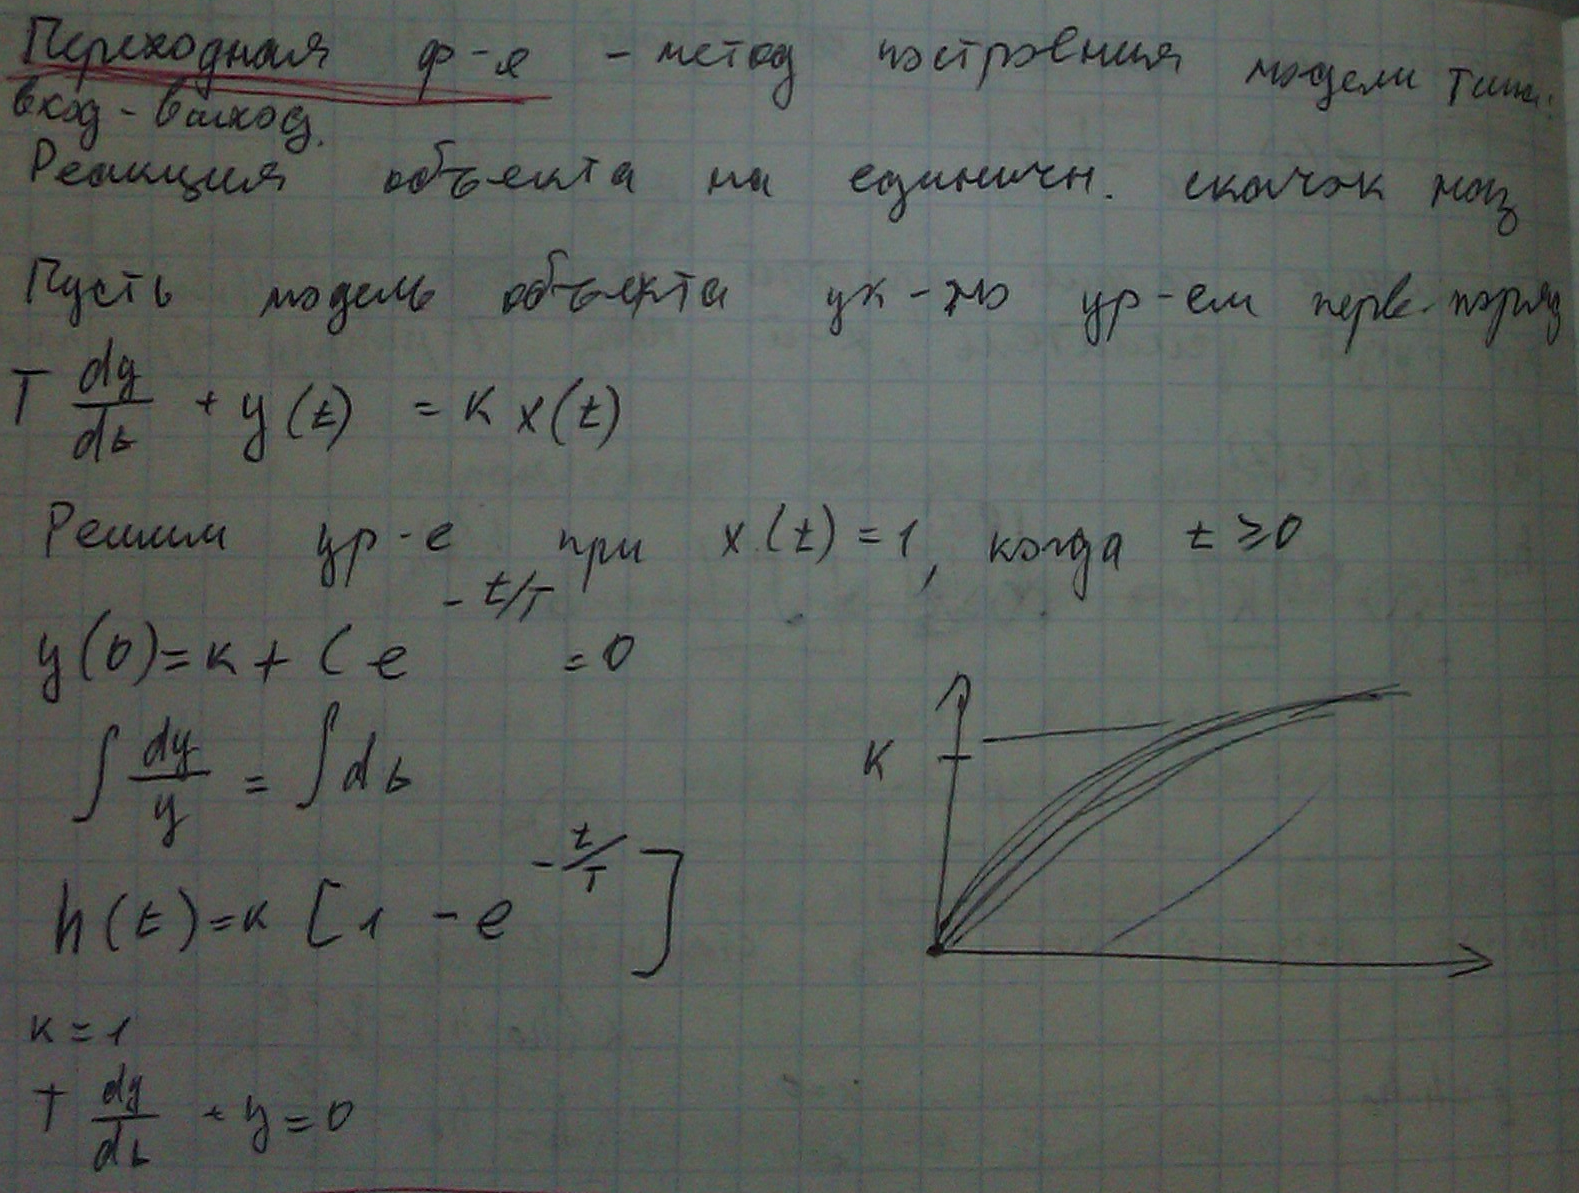 Переходная ф-я - метод построения модели типа:
вход-выход.
Реакция объекта на единичн. скачок наз
Пусть модель объекта ур-ем перв. поряд
T dy/dt + y(t) = K x(t)
Решим ур-е при x(t) = 1, когда t ≥ 0
y(0) = K + C e^(-t/T) = 0
∫ dy/y = ∫ dt
h(t) = K [1 - e^(-t/T)]
K
K = 1
T dy/dt + y = 0